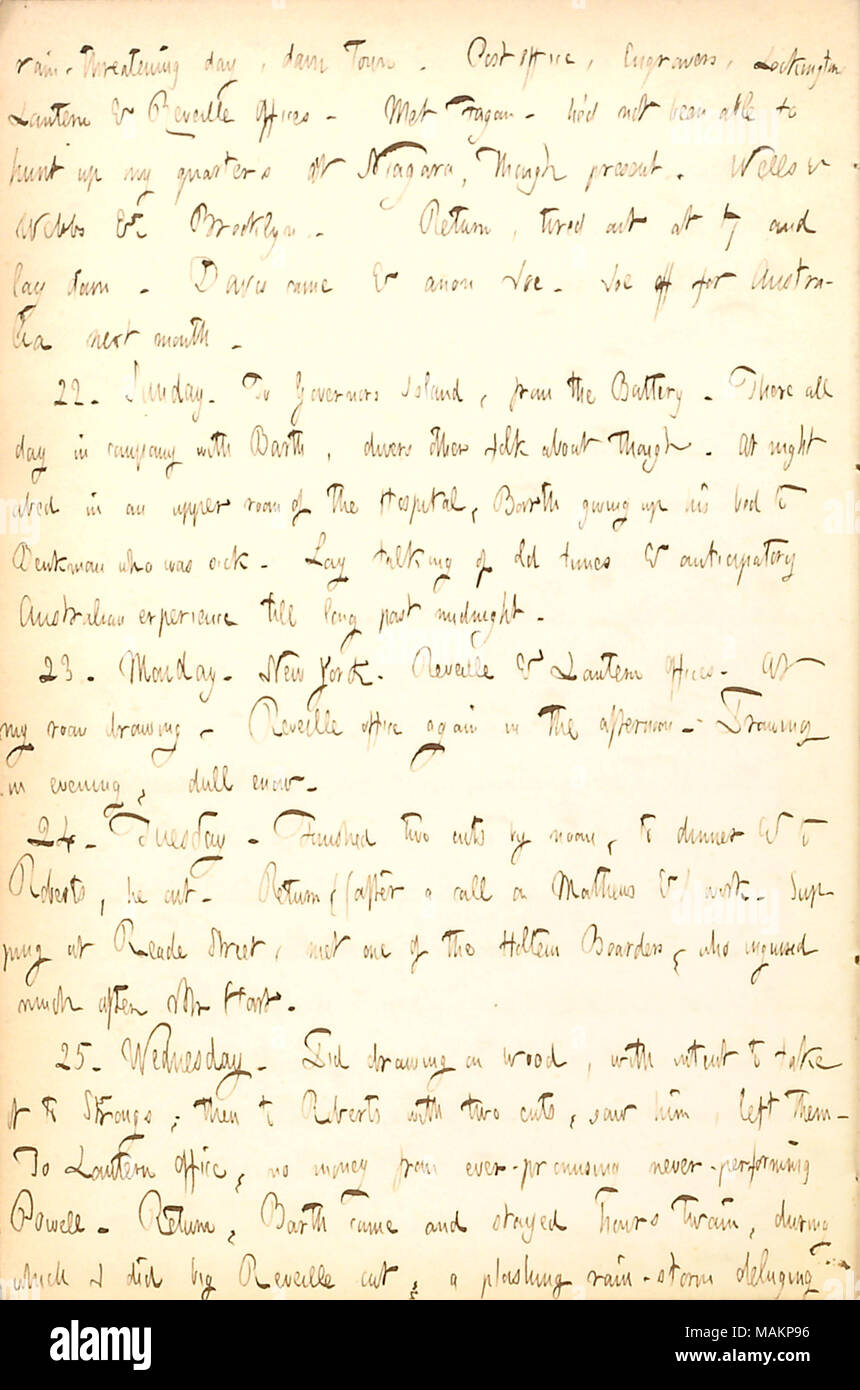 rain-threatening day, down Town. Post office, Engravers, Lockington
Lantern & Reveille Offices. Met Fagan. he'd not been able to
hunt up my quarters at Niagara, though present. Wells &
Webbs &c Brooklyn. Return, tired out at 7 and
lay down. Davis came & anon Joe. Joe off for Austra-
lia next month.
22. Sunday. To Governors Island, from the Battery. There all
day in company with Barth, divers other folk about though. At night
abed in an upper room of the Hospital, Barth giving up his bed to
Denkman who was sick. Lay talking of old times & anticipatory
Australian experience till long past midnight.
23. Monday. New York. Reveille & Lantern Offices. At
my room drawing. Reveille office again in the afternoon. Drawing
in evening, dull enow.
24. Tuesday. Finished two cuts by noon, to dinner & to
Roberts, he out. Return (after a call on Mathews &) work. Sup-
ping at Reade Street, met one of the Holtem Boarders, who inquired
much after Mr Hart.
25. Wednesday. Did drawing on wood, with intent to take
it to Strongs, then to Roberts with two cuts, saw him, left them.
To Lantern Office, no money from ever-promising never-performing
Powell. Return, Barth came and stayed hours twain, during
which I did big Reveille cut, a plashing rain-storm deluging
alamy
Image ID: MAKP96
www.alamy.com